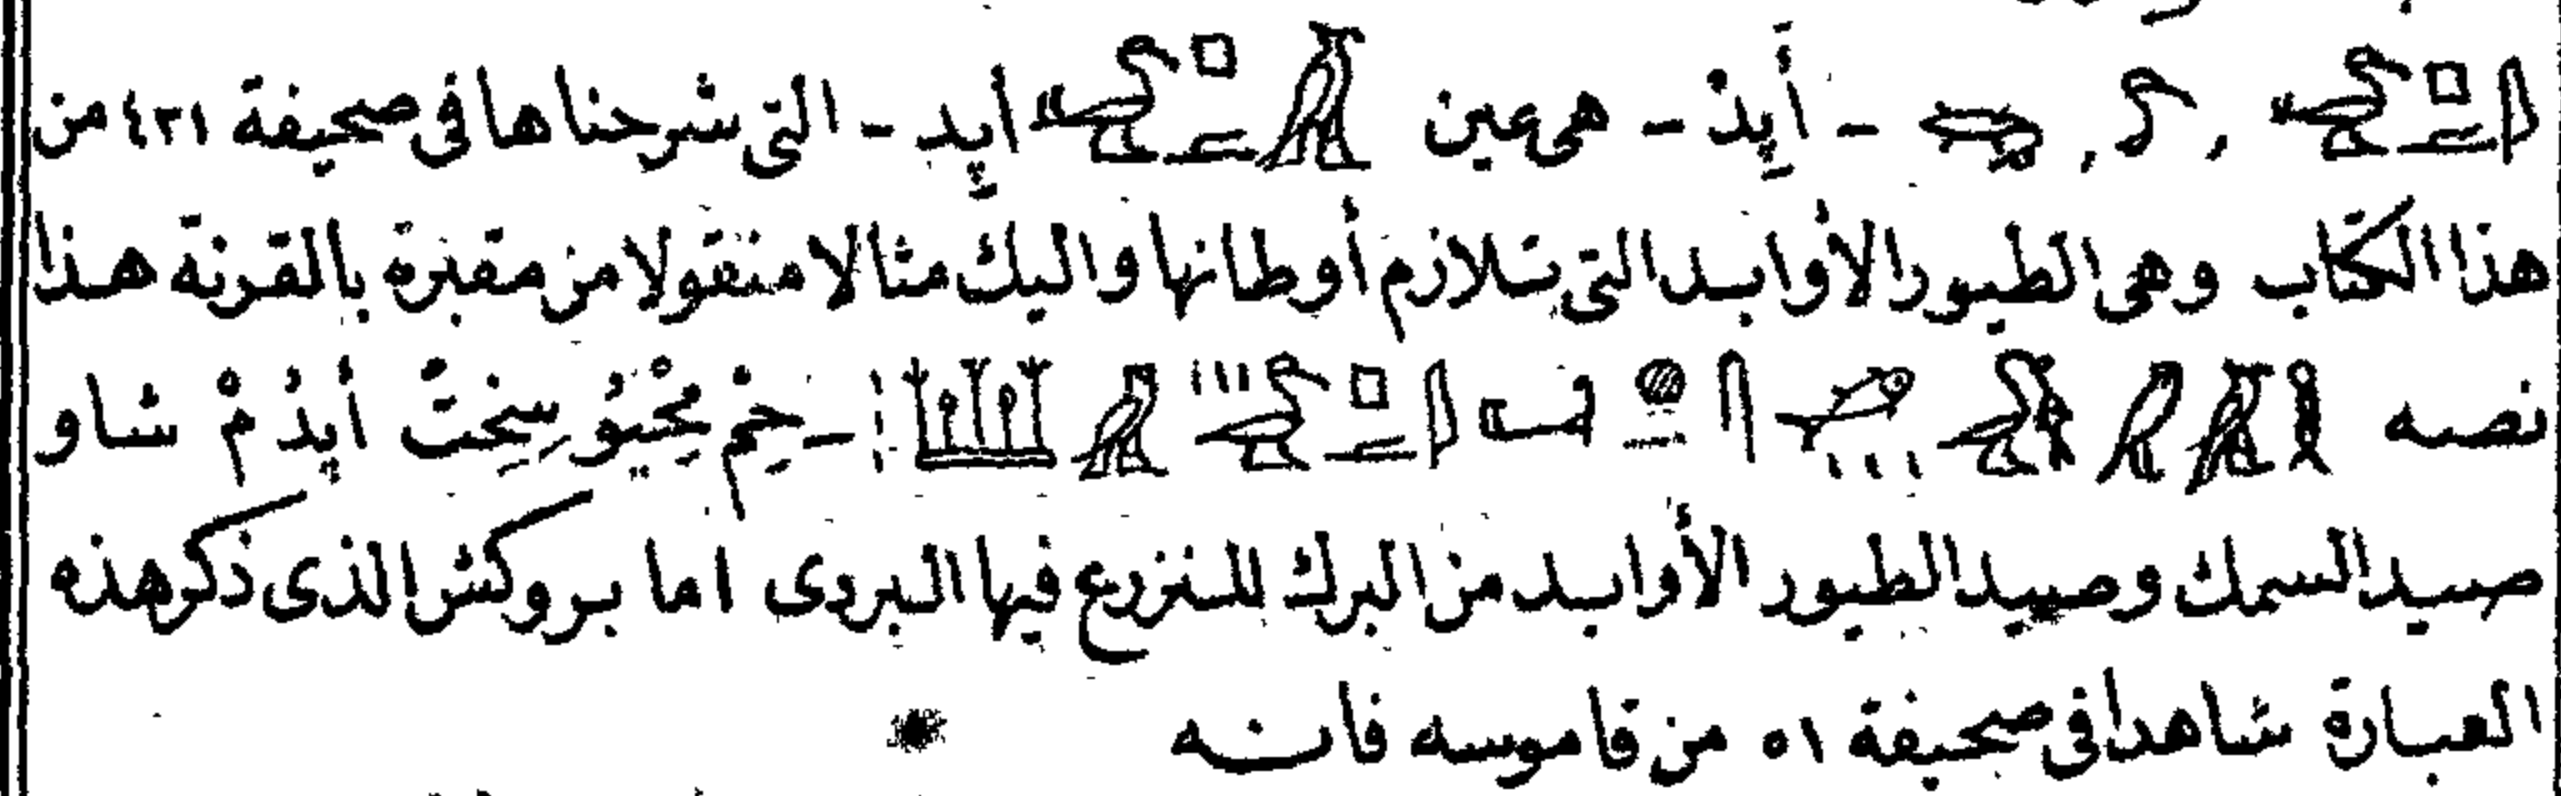 - أَپِدْ - هى عين اپد - التى شرحناها فى صحيفة ٤٣١ من
هذا الكتاب وهى الطيور الأوابد التى تلازم أوطانها واليك مثالا منقولا من مقبرة بالقرنة هذا
نصه - حِمْ مِحْيُو سِخِتْ أَپِدُ مْ شاو
صيد السمك وصيد الطيور الأوابد من البرك المنزرع فيها البردى اما بروكش الذى ذكر هذه
العبارة شاهدا فى صحيفة ٥١ من قاموسه فانه